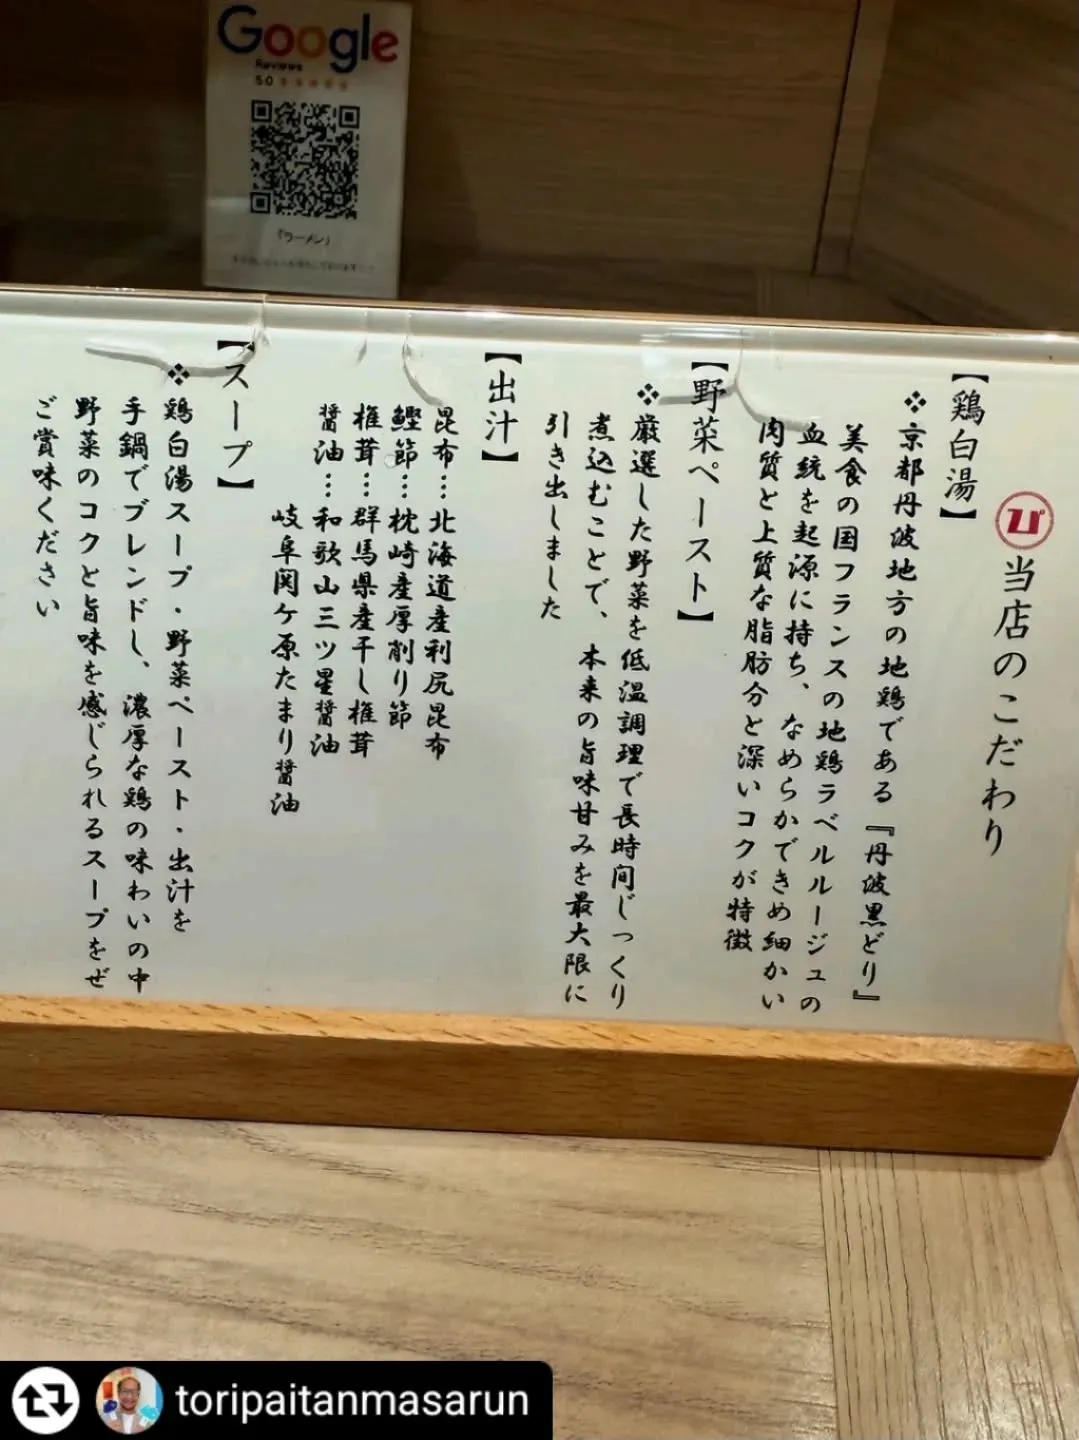 Google
Reviews
5.0
(ラーメン)
ぴ 当店のこだわり
【鶏白湯】
❖京都丹波地方の地鶏である『丹波黒どり』
美食の国フランスの地鶏ラベルルージュの
血統を起源に持ち、なめらかできめ細かい
肉質と上質な脂肪分と深いコクが特徴
【野菜ペースト】
❖厳選した野菜を低温調理で長時間じっくり
煮込むことで、本来の旨味甘みを最大限に
引き出しました
【出汁】
昆布…北海道産利尻昆布
鰹節…枕崎産厚削り節
椎茸…群馬県産干し椎茸
醤油…和歌山三ツ星醤油
岐阜関ケ原たまり醤油
【スープ】
❖鶏白湯スープ・野菜ペースト・出汁を
手鍋でブレンドし、濃厚な鶏の味わいの中
野菜のコクと旨味を感じられるスープをぜ
ご賞味ください
toripaitanmasarun